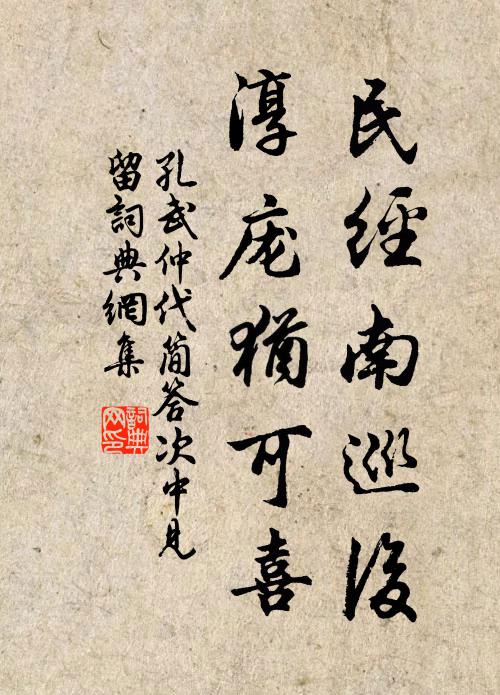 民經南巡後
淳庬猶可喜
孔武仲代簡答次中見
留詞典網集
詞典
网印